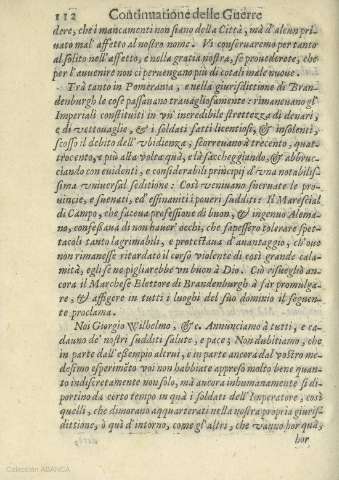 112 Continuatione delle Guerre
dere, che i mancamenti non siano della Città, mà d'alcun pri-
uato mal'affetto al nostro nome. Vi conseruaremo per tanto
al solito nell'affetto, e nella gratia nostra, se prouederete, che
per l'auuenire non ci peruengano più di cotali male nuoue.
Trà tanto in Pomerania, e nella giurisdittione di Bran-
denburgh le cose passauano trauagliosamente: rimaneuano gl'
Imperiali constituiti in vn'incredibile strettezza di denari,
e di vettouaglie, & i soldati fatti licentiosi, & insolenti,
scosso il debito dell'vbidienza, scorreuano à trecento, quat-
trocento, e più alla volta quà, e là saccheggiando, & abbruc-
ciando con euidenti, e considerabili principij d'vna notabilis-
sima vniuersal seditione: Così veniuano sneruate le pro-
uincie, e suenati, ed essinaniti i poueri sudditi: Il Marescial
di Campo, che faceua professione di buon, & ingenuo Alema-
no, confessaua di non hauer'occhi, che sapessero tolerare spet-
tacoli tanto lagrimabili, e protestaua d'auantaggio, ch'oue
non rimanesse ritardato il corso violente di così grande cala-
mità, egli se ne pigliarebbe vn buon à Dio. Ciò risuegliò an-
cora il Marchese Elettore di Brandenburgh à far promulga-
re, & affigere in tutti i luoghi del suo dominio il seguen-
te proclama.
Noi Giorgio Wilhelmo, &c. Annunciamo à tutti, e ca-
dauno de' nostri sudditi salute, e pace; Non dubitiamo, che
in parte dall'essempio altrui, e in parte ancora dal vostro me-
desimo esperimẽto voi non habbiate appreso molto bene quan-
to indiscretamente non solo, mà ancora inhumanamente si di-
portino da certo tempo in quà i soldati dell'Imperatore, così
quelli, che dimorano acquarterati nella nostra propria giuris-
dittione, ò quà d'intorno, come gl'altri, che vanno hor quà,
hor
Colección ABANCA